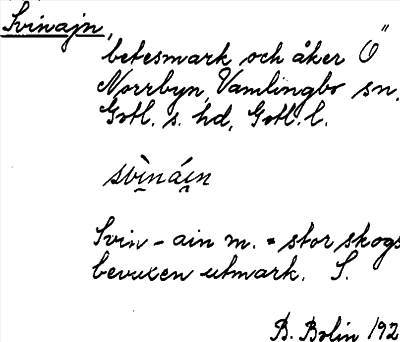 Svinajn,
betesmark och åker Ö"
Norrbyn, Vamlingbo sn,
Gotl. s. hd, Gotl. l.
svìnáin
Svin-ain m. = stor skogs
bevuxen utmark. S.
B. Bolin 192